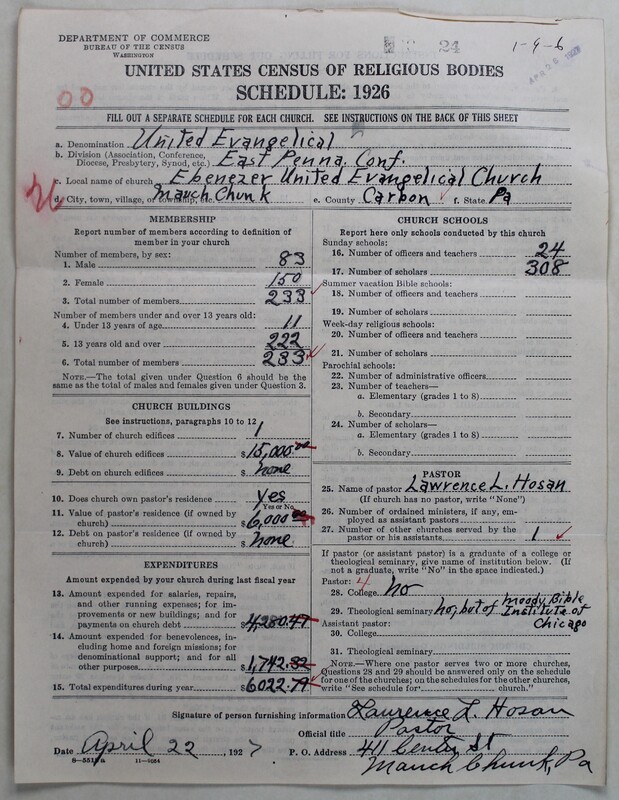 DEPARTMENT OF COMMERCE
BUREAU OF THE CENSUS
WASHINGTON
24
1-9-6
UNITED STATES CENSUS OF RELIGIOUS BODIES
SCHEDULE: 1926
00
FILL OUT A SEPARATE SCHEDULE FOR EACH CHURCH. SEE INSTRUCTIONS ON THE BACK OF THIS SHEET
a. Denomination United Evangelical
b. Division (Association, Conference, Diocese, Presbytery, Synod, etc.) East Penna. Conf.
c. Local name of church Ebenezer United Evangelical Church
d. City, town, village, or township, etc. Mauch Chunk e. County Carbon f. State Pa
MEMBERSHIP
Report number of members according to definition of
member in your church
Number of members, by sex:
1. Male 83
2. Female 150
3. Total number of members 233
Number of members under and over 13 years old:
4. Under 13 years of age 11
5. 13 years old and over 222
6. Total number of members 233
NOTE.—The total given under Question 6 should be the
same as the total of males and females given under Question 3.
CHURCH BUILDINGS
See instructions, paragraphs 10 to 12
7. Number of church edifices 1
8. Value of church edifices $15,000.00
9. Debt on church edifices $ none
10. Does church own pastor's residence Yes
Yes or No
11. Value of pastor's residence (if owned by
church) $6,000.00
12. Debt on pastor's residence (if owned by
church) $ none.
EXPENDITURES
Amount expended by your church during last fiscal year
13. Amount expended for salaries, repairs,
and other running expenses; for im-
provements or new buildings; and for
payments on church debt $4,280.47
14. Amount expended for benevolences, in-
cluding home and foreign missions; for
denominational support; and for all
other purposes 1,742.32
15. Total expenditures during year $6022.79
CHURCH SCHOOLS
Report here only schools conducted by this church
Sunday schools:
16. Number of officers and teachers 24
17. Number of scholars 308
Summer vacation Bible schools:
18. Number of officers and teachers
19. Number of scholars
Week-day religious schools:
20. Number of officers and teachers
21. Number of scholars
Parochial schools:
22. Number of administrative officers
23. Number of teachers—
a. Elementary (grades 1 to 8)
b. Secondary
24. Number of scholars—
a. Elementary (grades 1 to 8)
b. Secondary
PASTOR
25. Name of pastor Lawrence L. Hosan
(If church has no pastor, write "None")
26. Number of ordained ministers, if any, em-
ployed as assistant pastors
27. Number of other churches served by the
pastor or his assistants 1
If pastor (or assistant pastor) is a graduate of a college or
theological seminary, give name of institution below. (If
not a graduate, write "No" in the space indicated.)
Pastor: 4
28. College No
29. Theological seminary no, but of Moody Bible Institute of Chicago
Assistant pastor:
30. College
31. Theological seminary
NOTE.—Where one pastor serves two or more churches,
Questions 28 and 29 should be answered only on the schedule
for one of the churches; on the schedules for the other churches,
write "See schedule for church."
Signature of person furnishing information Lawrence L. Hosan
Official title Pastor
Date April 22, 1927 P. O. Address 411 Center St
Mauch Chunk, Pa
8-5517a 11-9064